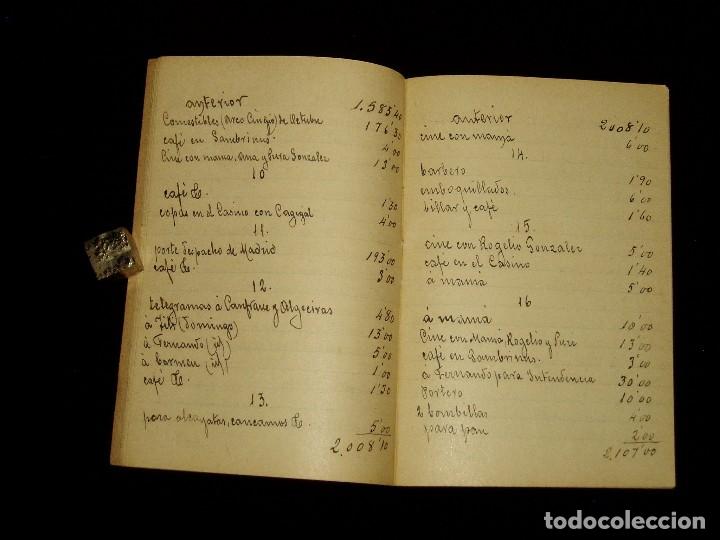 anterior 1.585'40
Comestibles (Arco Cingio) de Octubre 176'30
café en Gambrinus 4'00
Cine con mama, Ana y Pura Gonzalez 13'00
10
café 1'30
copas en el Casino con Cagigal 4'00
11.
porte despacho de Madrid 193'00
café 3'00
12.
telegramas á Canfranc y Algeciras 4'80
á Fili (Domingo) 13'00
á Fernando (id) 5'00
á Carmen (id) 1'00
café 1'30
13.
para alcayatas, cancamos 5'00
2.008'10
anterior 2008'10
cine con mamá 6'00
14.
barbero 1'90
emboquillados. 6'00
billar y café 1'60
15.
cine con Rogelio Gonzalez 5'00
café en el Casino 1'40
á mamá 5'00
16
á mamá 10'00
Cine con Mamá, Rogelio y Pura 13'00
café en Gambrinus. 3'00
á Fernando para Intendencia 30'00
Portero 10'00
2 bombillas 4'00
para pan 2'00
2.107'00
todocoleccion